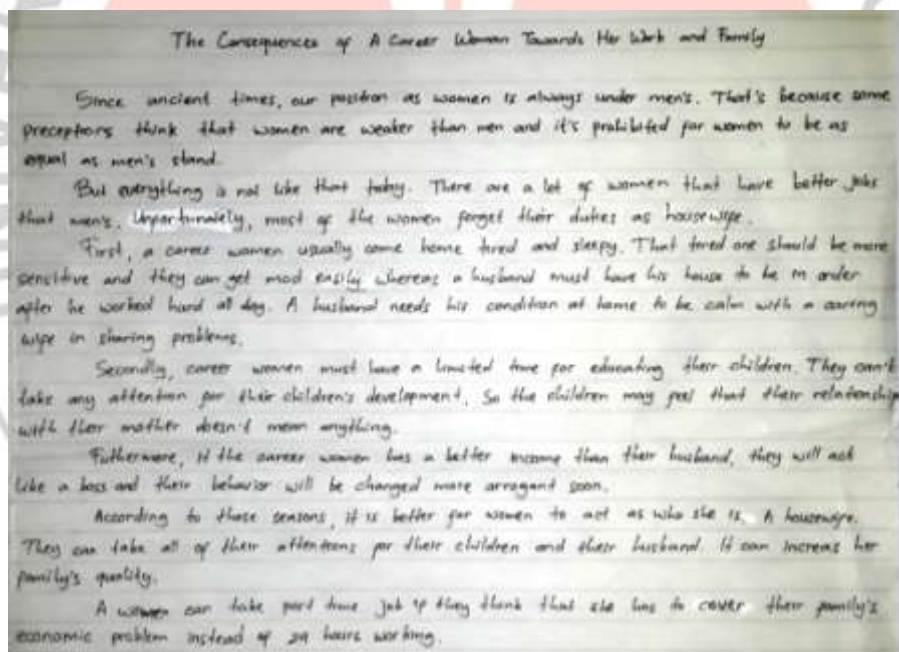 The Consequences of A Career Woman Towards Her Work and Family
Since ancient times, our position as women is always under men's. That's because some
preceptions think that women are weaker than men and it's prohibited for women to be as
equal as men's stand.
But everything is not like that today. There are a lot of women that have better jobs
that men's. Unfortunately, most of the women forget their duties as housewife.
First, a career women usually come home tired and sleepy. That tired one should be more
sensitive and they can get mad easily whereas a husband must have his house to be in order
after he worked hard all day. A husband needs his condition at home to be calm with a caring
wife in sharing problems.
Secondly, career women must have a limited time for educating their children. They can't
take any attention for their children's development. So the children may feel that their relationship
with their mother doesn't mean anything.
Futhermore, if the career women has a better income than their husband, they will act
like a boss and their behavior will be changed more arrogant soon.
According to those seasons, it is better for women to act as who she is. A housewife.
They can take all of their attentions for their children and their husband. It can increas her
family's quality.
A women can take part time job if they think that she has to cover their family's
economic problem instead of 24 hours working.